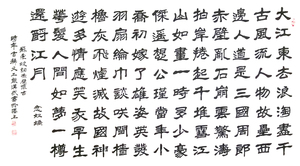 大江東去浪淘盡千
古風流人物故壘西
邊人道是三國周郎
赤壁亂石崩雲驚濤
拍岸捲起千堆雪江
山如畫一時多少豪
傑遙想公瑾當年小
喬初嫁了雄姿英發
羽扇綸巾談笑間檣
櫓灰飛煙滅故國神
遊多情應笑我早生
華髮人間如夢一樽
還酹江月
念奴嬌